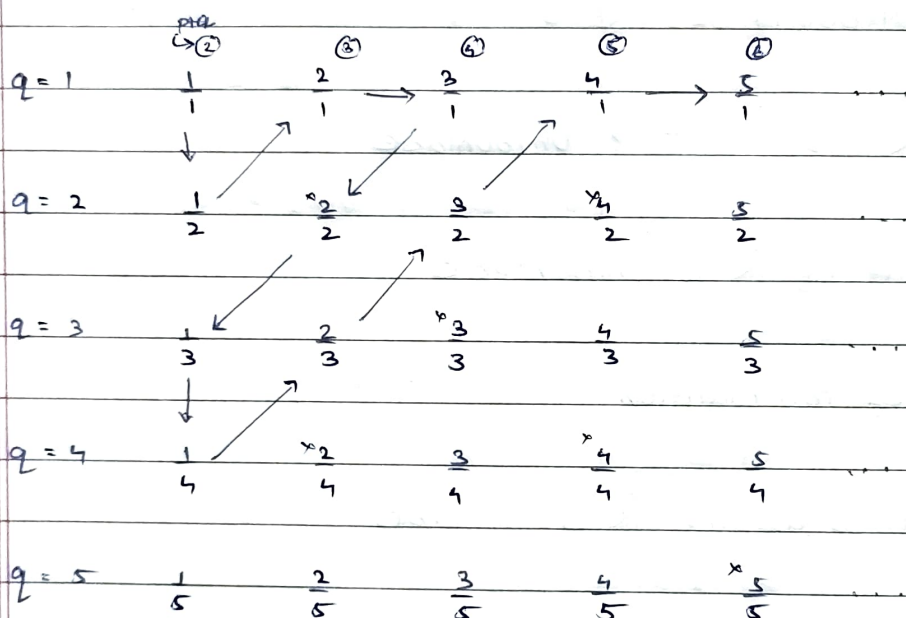 p+q
↳ ② ③ ④ ⑤ ⑥
q = 1 1/1 2/1 → 3/1 4/1 → 5/1 ....
q = 2 1/2 ×2/2 3/2 ×4/2 5/2 ....
q = 3 1/3 2/3 ×3/3 4/3 5/3 ....
q = 4 1/4 ×2/4 3/4 ×4/4 5/4 ....
q = 5 1/5 2/5 3/5 4/5 ×5/5 ....